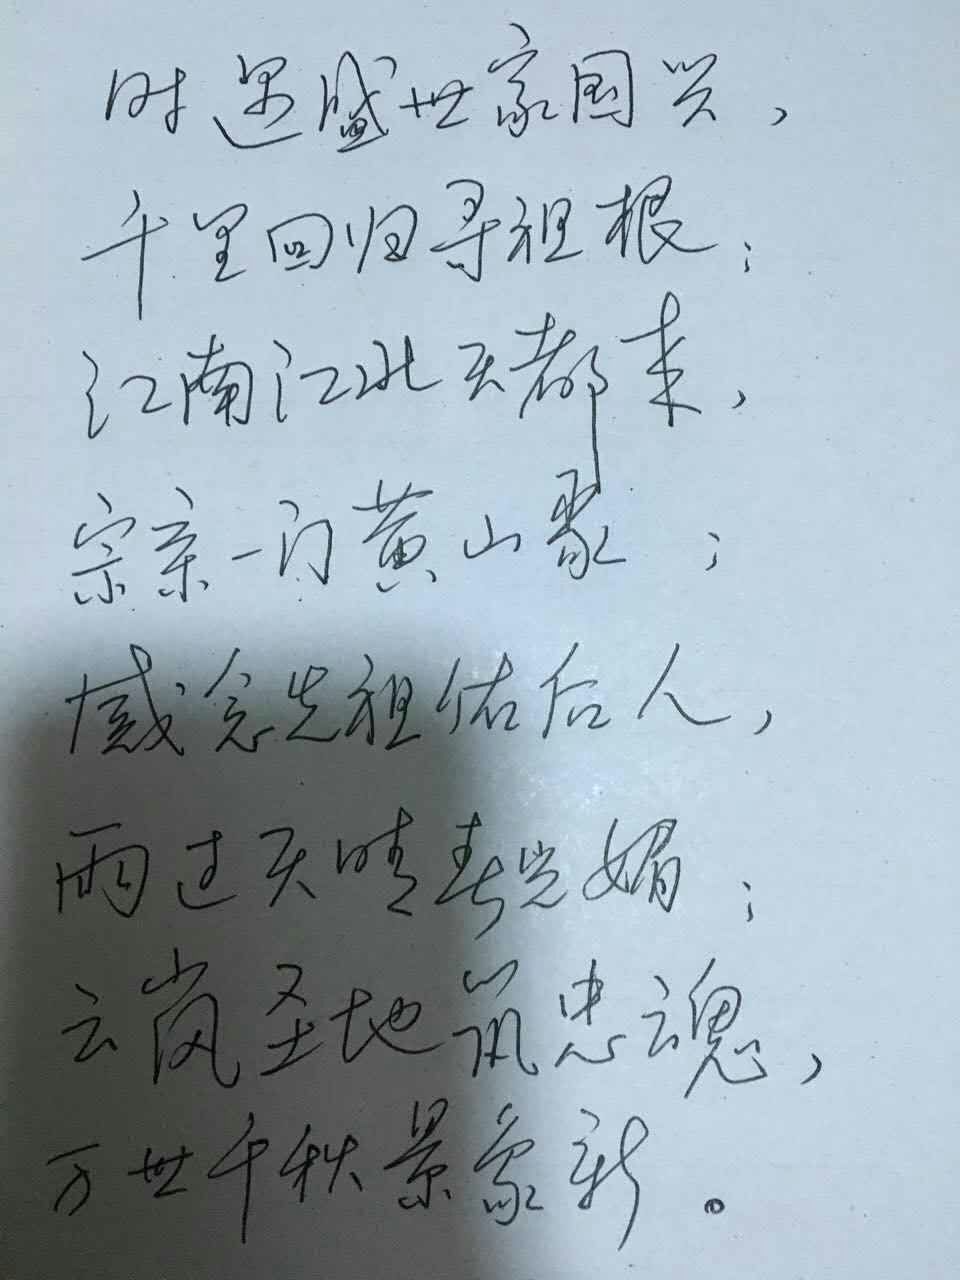 时遇盛世家国兴，
千里回归寻祖根；
江南江北天都来，
宗亲一门黄山聚；
感念先祖佑后人，
雨过天晴春光媚；
云岚圣地筑忠魂，
万世千秋景象新。